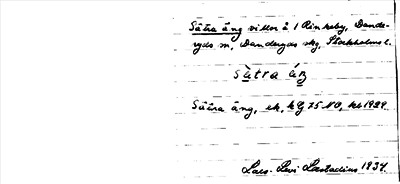 Sätra äng villor å 1 Rinkeby, Dande-
ryds sn, Danderyds skg, Stockholms l.
sὰtra ἅŋ
Sätra äng, ek. kbl 75 NO, kb 1929.
Lars-Levi Læstadius 1934.